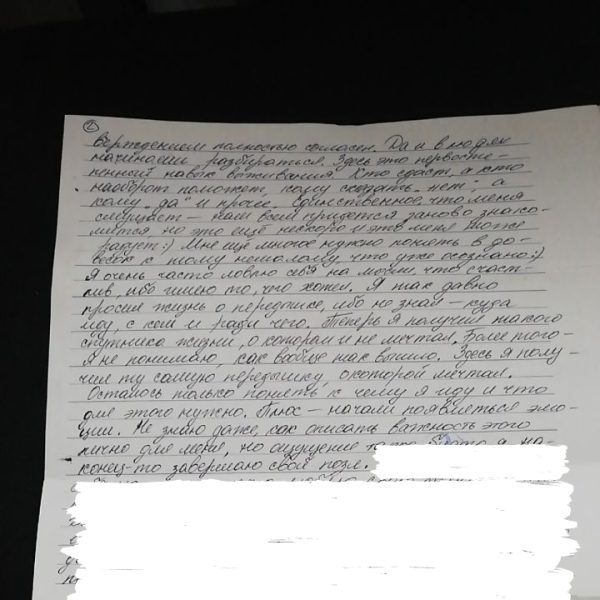 2
верждением полностью согласен. Да и в людях
начинаешь разбираться. Здесь это первосте-
пенный навык выживания. Кто сдаст, а кто
наоборот поможет, кому сказать „нет“, а
кому „да“ и проч. Единственное что меня
смущает – нам всем придется заново знако-
мится, но это ещё нескоро и это меня тоже
радует:) Мне ещё многое нужно понять в до-
весок к тому немалому, что уже осознано:)
Я очень часто ловлю себя на мысли, что счаст-
лив, ибо имею то, чего хотел. Я так давно
просил жизнь о передышке, ибо не знал – куда
иду, с кем и ради чего. Теперь я получил такого
спутника жизни, о котором и не мечтал. Более того –
я не понимаю, как вообще так вышло. Здесь я полу-
чил ту самую передышку, о которой мечтал.
Осталось только понять к чему я иду и что
для этого нужно. Плюс – начали появляться эмо-
ции. Не знаю даже, как описать важность этого
лично для меня, но ощущение такое будто я на-
конец-то завершаю свой пазл.